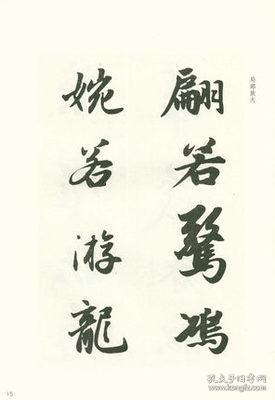 局部放大
翩若驚鴻
婉若游龍
15
孔夫子旧书网